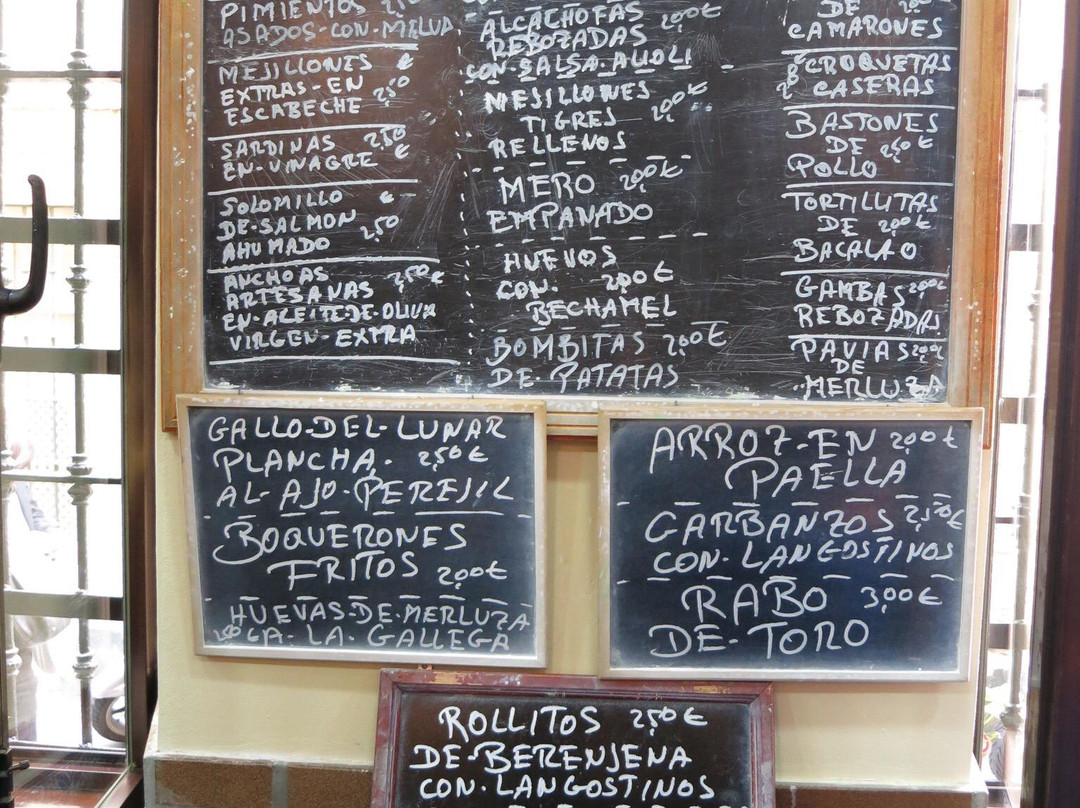 PIMIENTOS 2,50
ASADOS-CON-MELVA
MEJILLONES €
EXTRAS-EN 2,50
ESCABECHE
SARDINAS 2,50
EN-VINAGRE €
SOLOMILLO €
DE-SALMON 2,50
AHUMADO
ANCHOAS 2,50€
ARTESANAS
EN-ACEITE-DE-OLIVA
VIRGEN-EXTRA
ALCACHOFAS 2,00€
REBOZADAS
CON-SALSA-ALIOLI
MEJILLONES
TIGRES 2,00€
RELLENOS
MERO 2,00€
EMPANADO
HUEVOS
CON. 2,00€
BECHAMEL
BOMBITAS 2,00€
DE-PATATAS
DE
CAMARONES
CROQUETAS
CASERAS
BASTONES
DE 2,50€
POLLO
TORTILLITAS
DE 2,00€
BACALAO
GAMBAS 2,00€
REBOZADAS
PAVIAS 2,00€
DE
MERLUZA
GALLO-DEL-LUNAR
PLANCHA. 2,50€
AL-AJO-PEREJIL
BOQUERONES
FRITOS 2,00€
HUEVAS-DE-MERLUZA
A-LA-GALLEGA
ARROZ-EN 2,00€
PAELLA
GARBANZOS 2,50€
CON-LANGOSTINOS
RABO 3,00€
DE-TORO
ROLLITOS 2,50€
DE-BERENJENA
CON-LANGOSTINOS